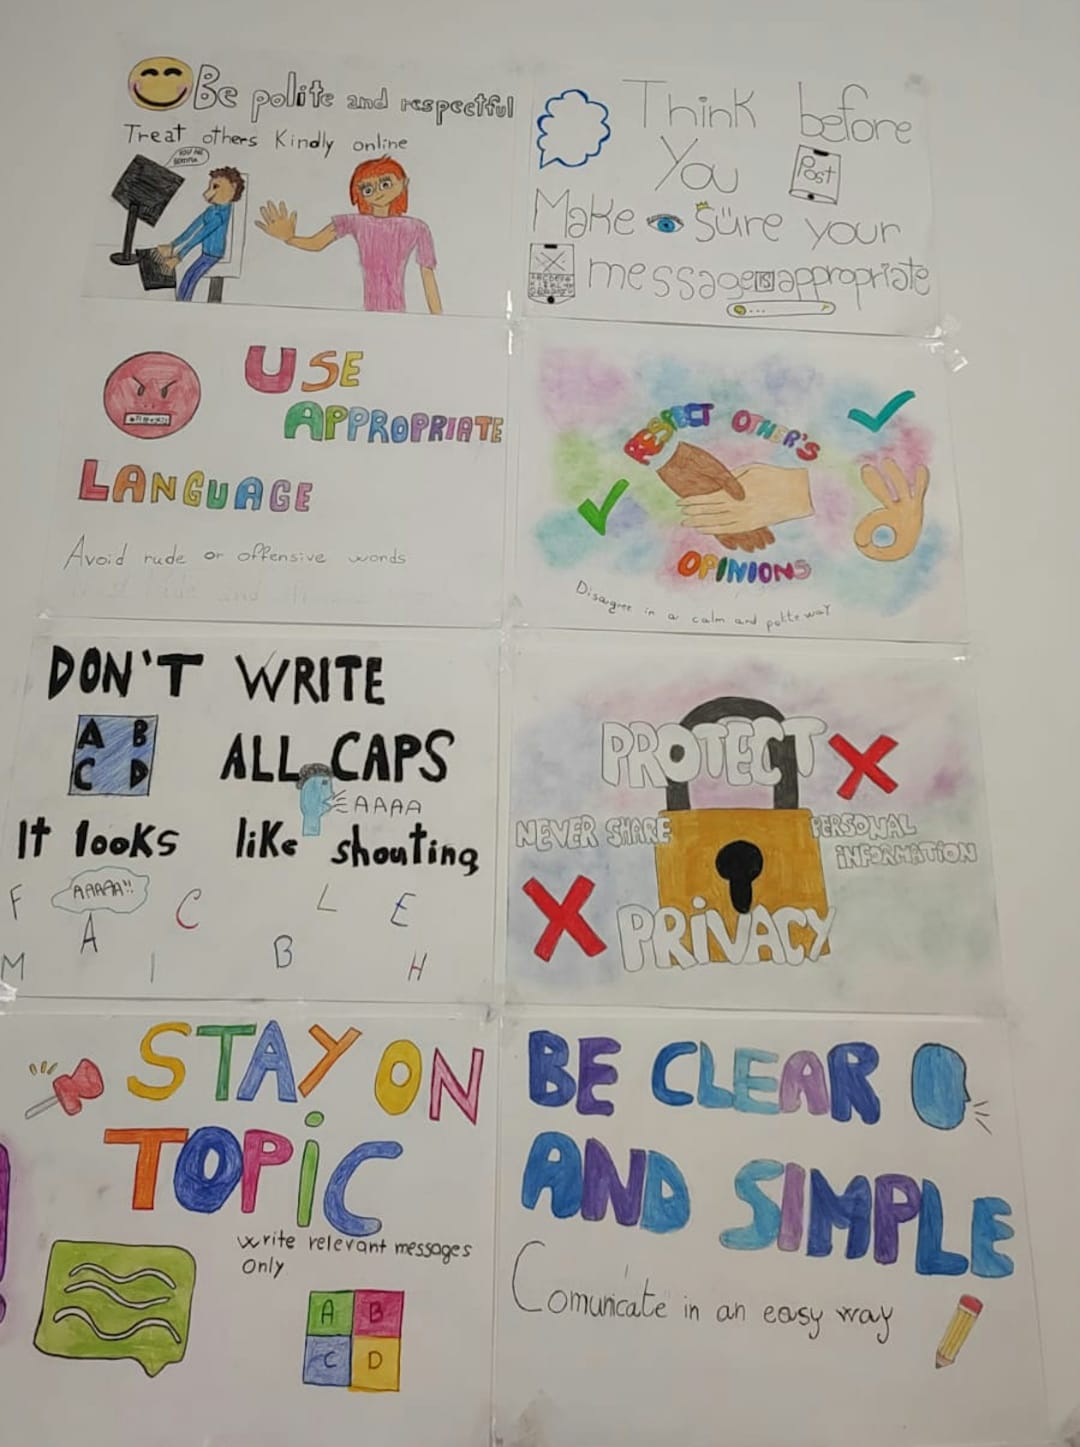 Be polite and respectful
Treat others Kindly online
YOU ARE
Think before
You
Post
Make sure your
message is appropriate
USE
APPROPRIATE
LANGUAGE
Avoid rude or offensive words
RESPECT OTHER'S
OPINIONS
Disagree in a calm and polite way
DON'T WRITE
A B
C D
ALL CAPS
AAAA
It looks like shouting
AAAAA!!
F A C L E
M I B H
PROTECT
NEVER SHARE PERSONAL
INFORMATION
PRIVACY
STAY ON
TOPIC
write relevant messages
only
A B
C D
BE CLEAR
AND SIMPLE
Comunicate in an easy way